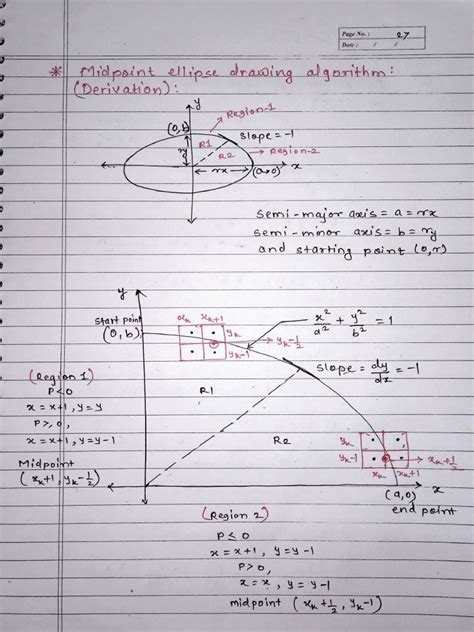 Page No. : 27
Date : / /
* Midpoint ellipse drawing algorithm:
(Derivation):
y
Region-1
(0,b)
slope = -1
R1
R2
Region-2
ry
rx
(a,0)
x
semi-major axis = a = rx
semi-minor axis = b = ry
and starting point (0,r)
y
start point
(0,b)
xk
xk+1
yk
yk-1/2
yk-1
x²/a² + y²/b² = 1
slope = dy/dx = -1
(Region 1)
P<0
x = x+1, y=y
P>,0,
x = x+1, y=y-1
Midpoint
(xk+1, yk-1/2)
R1
R2
yk
yk-1
xk
xk+1
xk+1/2
x
(a,0)
end point
(Region 2)
P≤0
x = x+1, y=y-1
P>0,
x=x, y=y-1
midpoint (xk+1/2, yk-1)